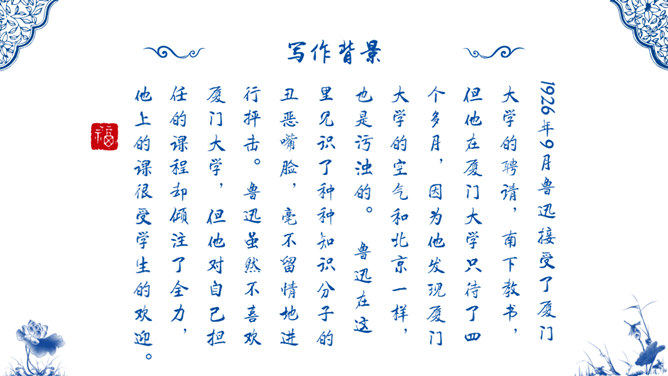 写作背景
1926年9月鲁迅接受了厦门
大学的聘请，南下教书，
但他在厦门大学只待了四
个多月，因为他发现厦门
大学的空气和北京一样，
也是污浊的。 鲁迅在这
里见识了种种知识分子的
丑恶嘴脸，毫不留情地进
行抨击。鲁迅虽然不喜欢
厦门大学，但他对自己担
任的课程却倾注了全力，
他上的课很受学生的欢迎。
福